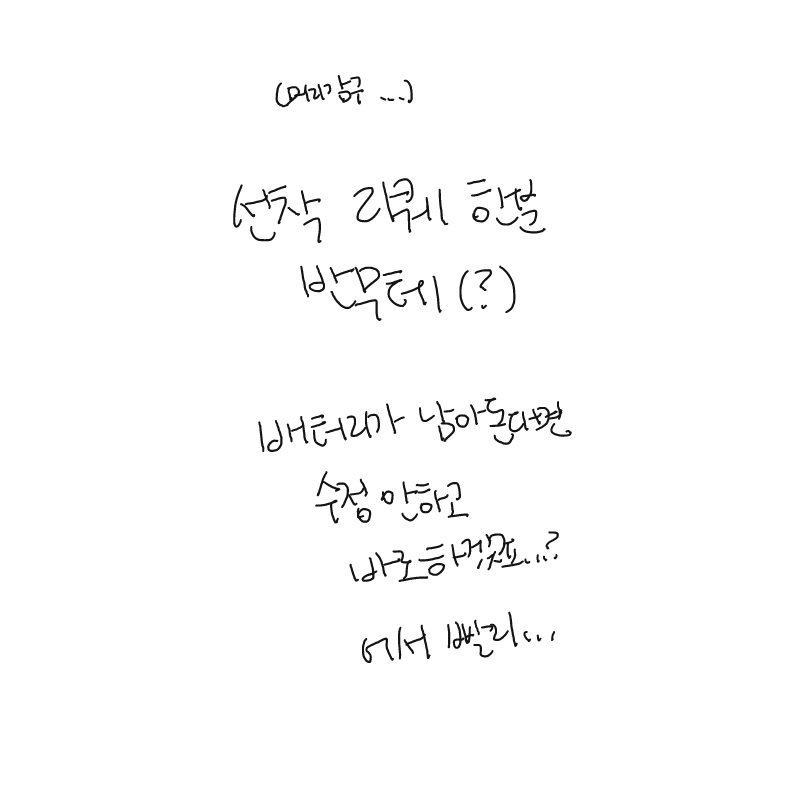 (머리감구 ...)
선착 리퀘 한번
받무테(?)
배터리가 남아돈다면
수정 안하고
바로하겠죠...?
어서 빨리...